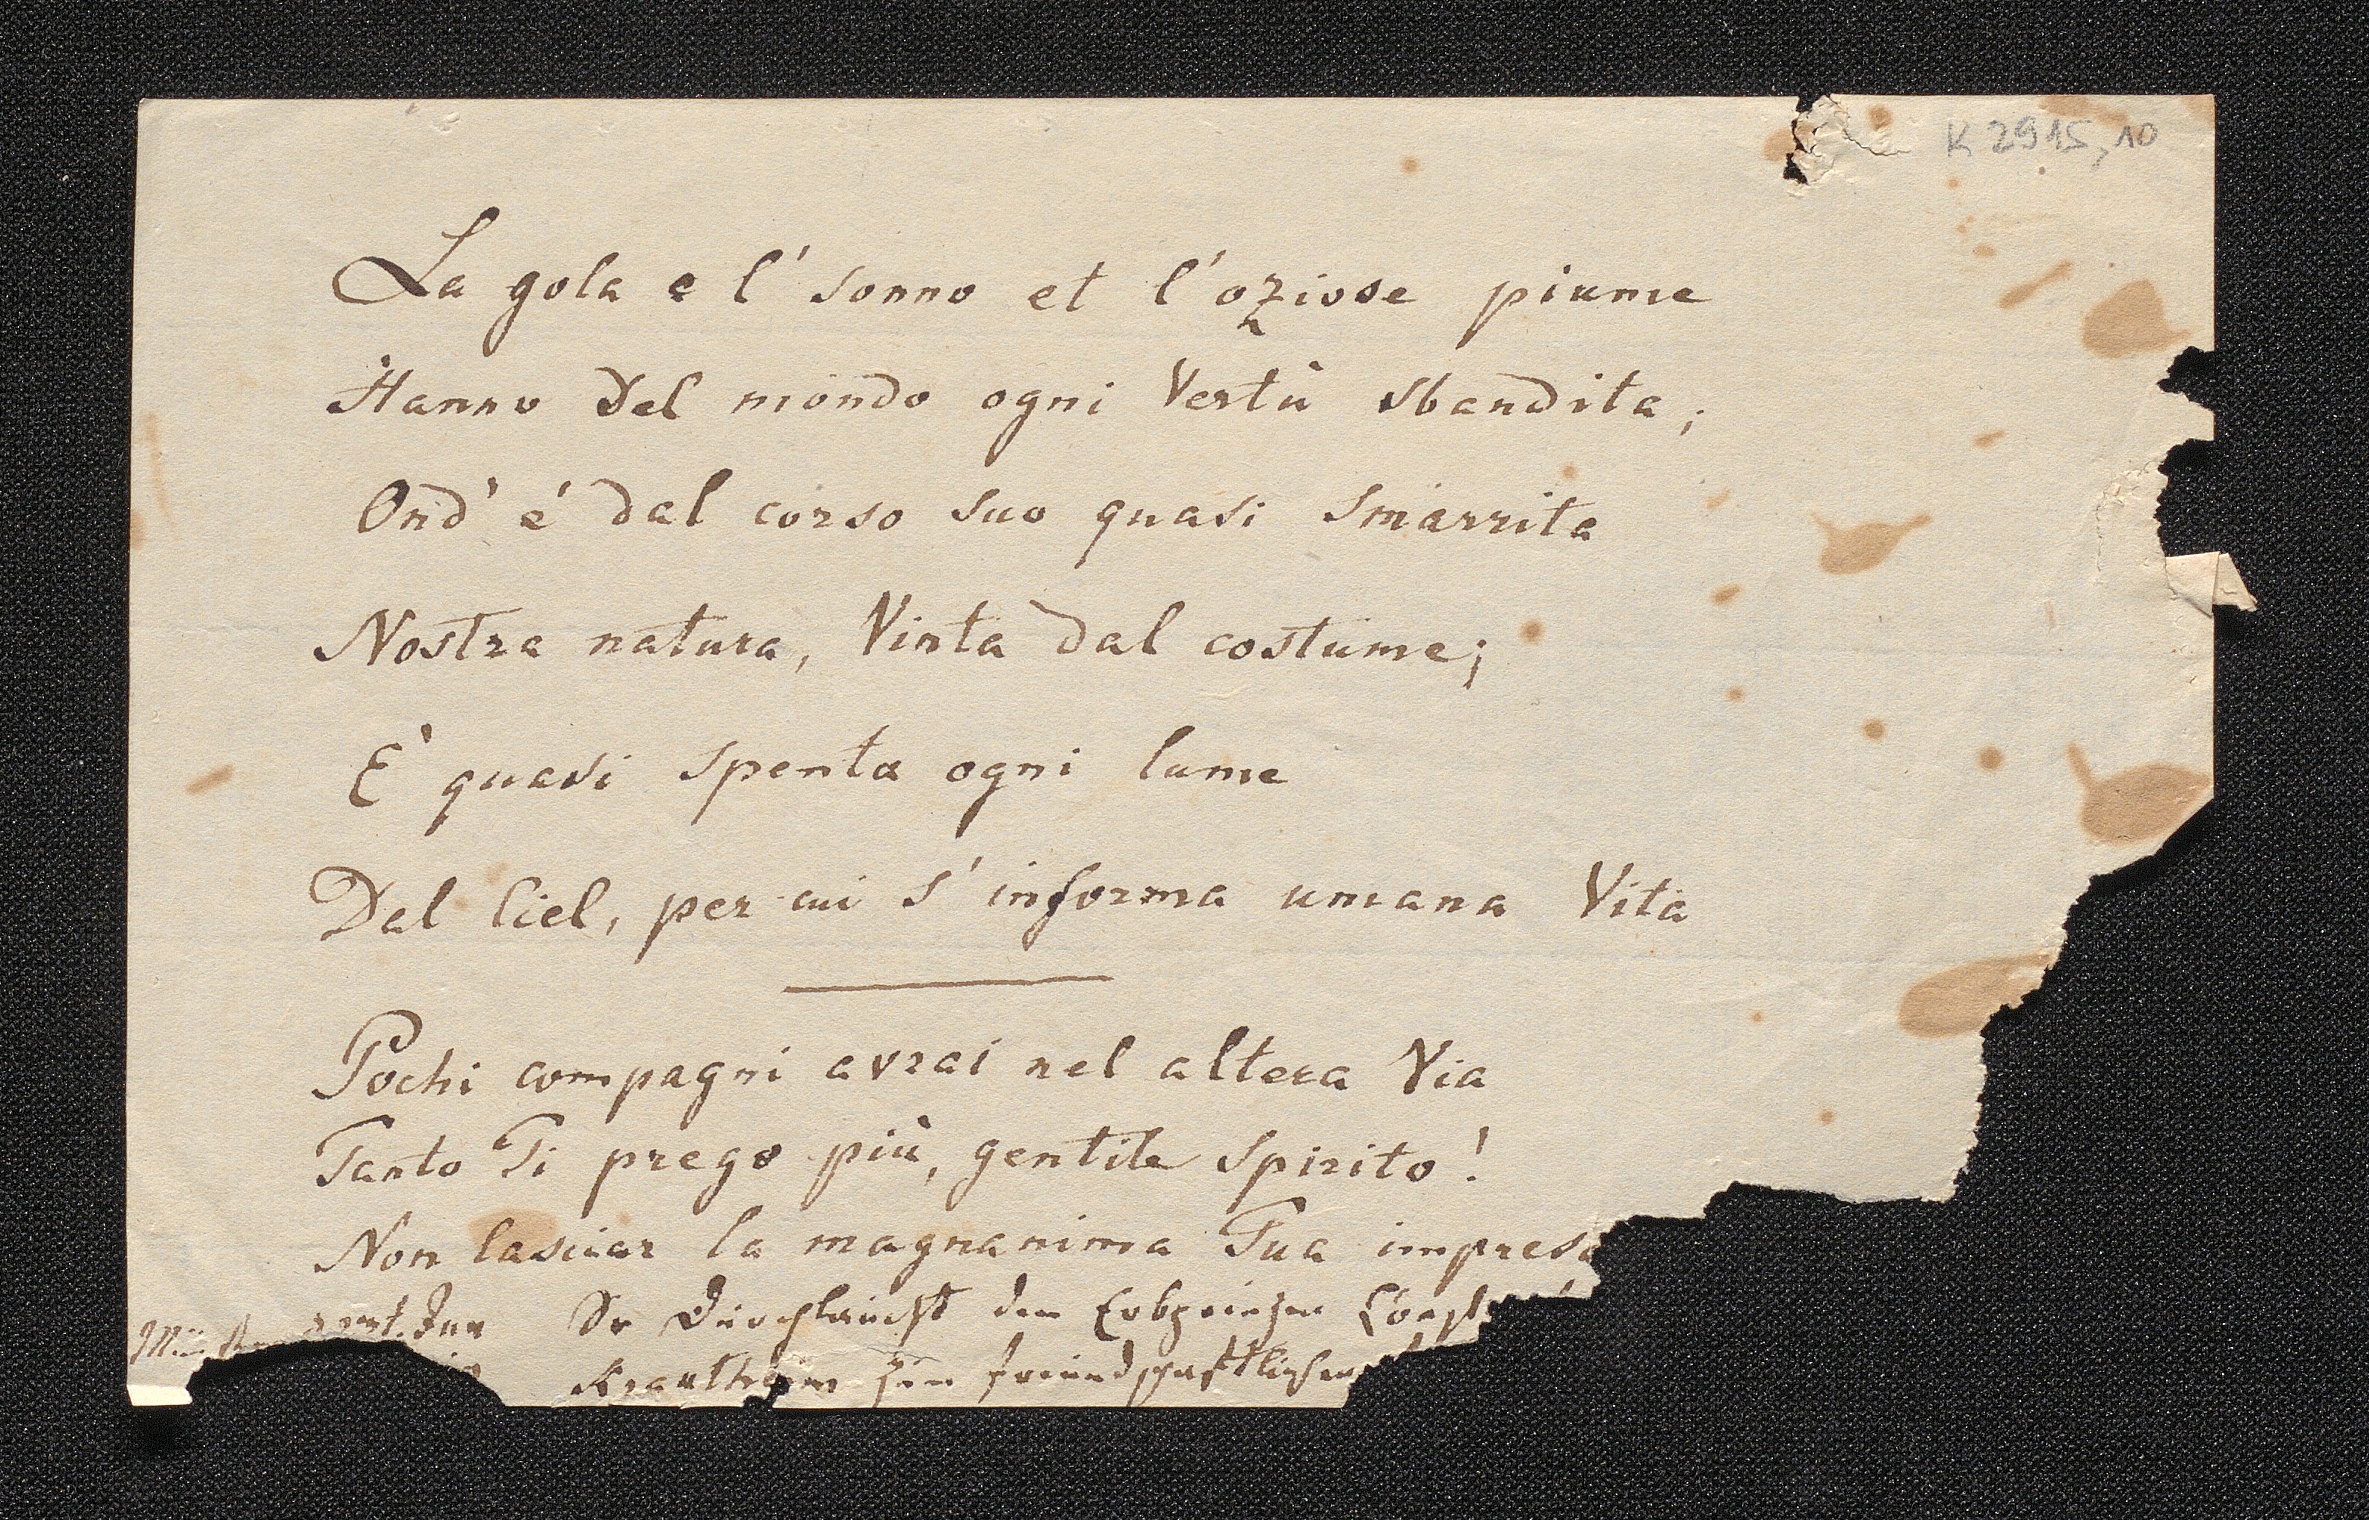 K 2915,10
La gola e l' sonno et l'oziose piume
Hanno del mondo ogni Vertù sbandita;
Ond' é dal corso suo quasi smarrita
Nostra natura, Vinta dal costume;
E' quasi spenta ogni lume
Del Ciel, per cui s' informa umana Vita
Pochi compagni avrai nel altera Via
Tanto Ti prego più, gentile Spirito!
Non lasciar la magnanima Tua impresa
Sr Durchlaucht dem Erbprinzen
Krautheim zur freundschaftlichen